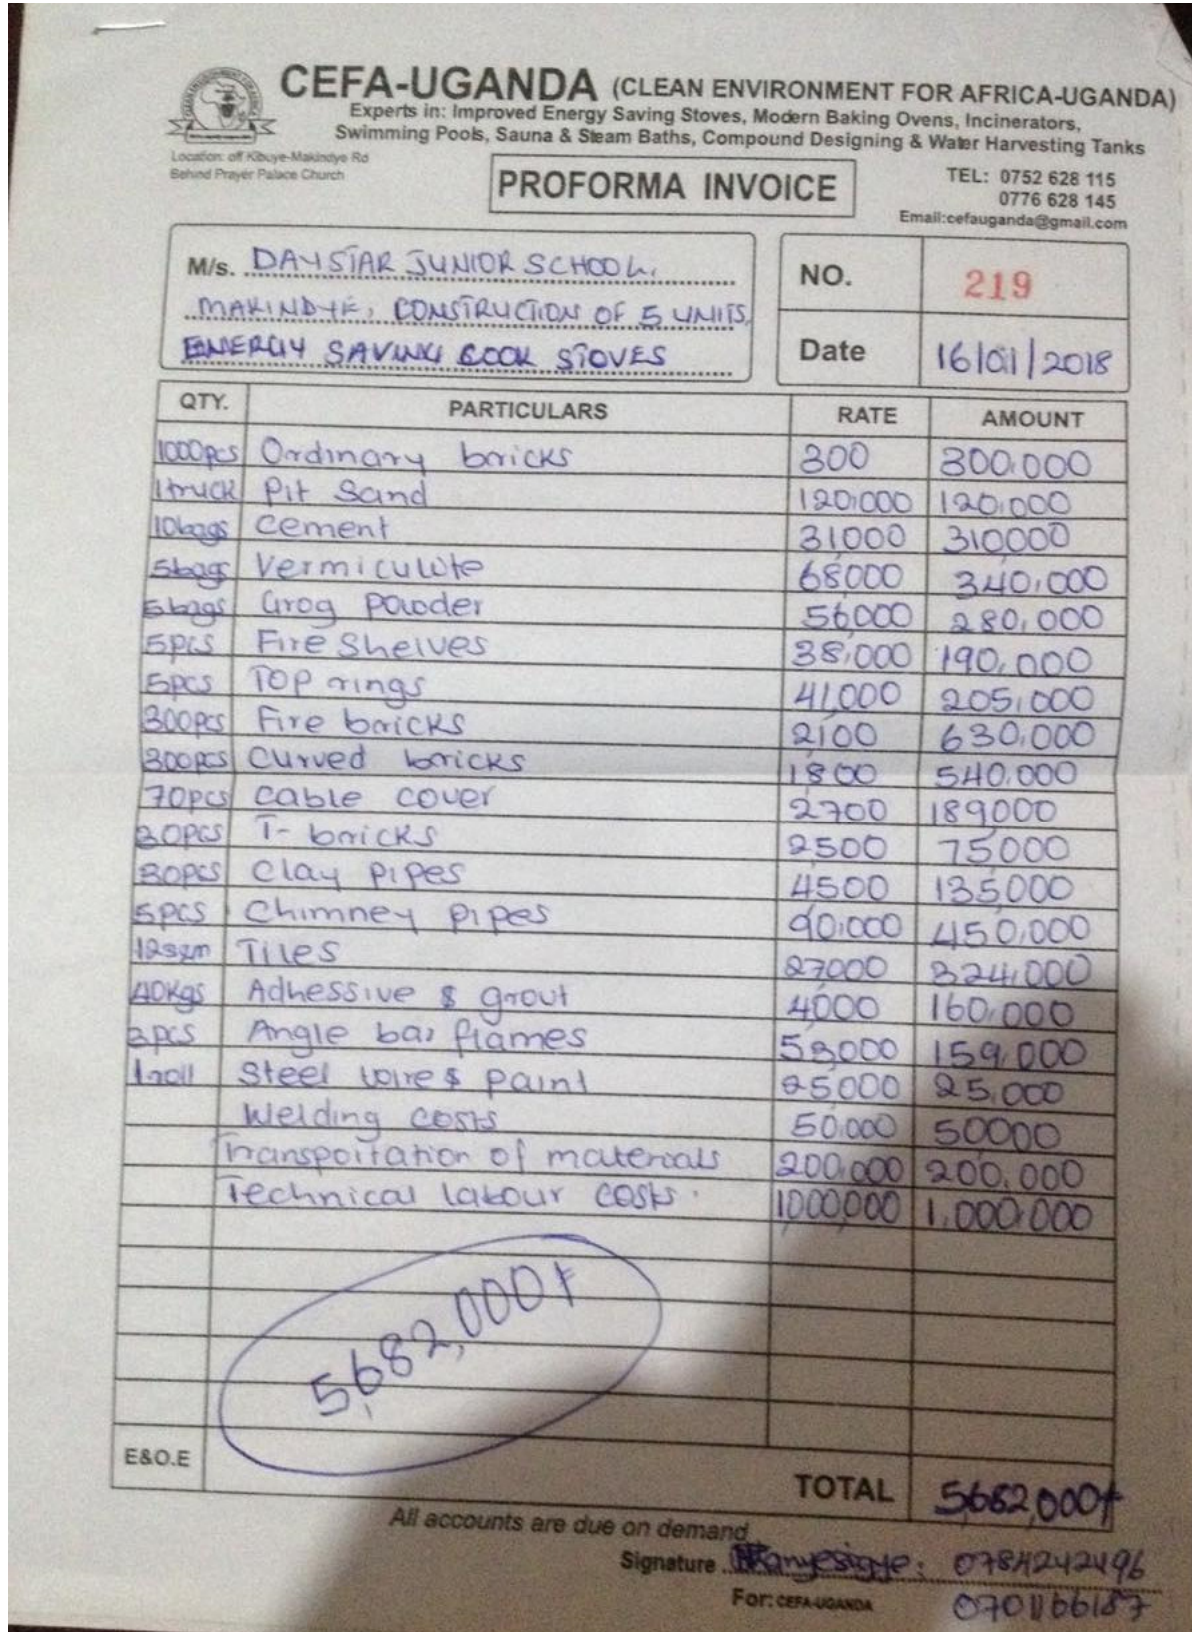 CEFA-UGANDA (CLEAN ENVIRONMENT FOR AFRICA-UGANDA)
Experts in: Improved Energy Saving Stoves, Modern Baking Ovens, Incinerators,
Swimming Pools, Sauna & Steam Baths, Compound Designing & Water Harvesting Tanks
Location: off Kibuye-Makindye Rd
Behind Prayer Palace Church
PROFORMA INVOICE
TEL: 0752 628 115
0776 628 145
Email:cefauganda@gmail.com
M/s. DAYSTAR JUNIOR SCHOOL,
MAKINDYE, CONSTRUCTION OF 5 UNITS
ENERGY SAVING COOK STOVES
NO. 219
Date 16/01/2018
QTY. PARTICULARS RATE AMOUNT
1000pcs Ordinary bricks 300 300,000
1truck Pit Sand 120,000 120,000
10bags Cement 31000 310000
5bags Vermiculite 68,000 340,000
5bags Grog powder 56,000 280,000
5pcs Fire Shelves 38,000 190,000
5pcs Top rings 41,000 205,000
300pcs Fire bricks 2100 630,000
300pcs Curved bricks 1800 540,000
70pcs Cable cover 2700 189000
30pcs T- bricks 2500 75000
30pcs Clay pipes 4500 135,000
5pcs Chimney pipes 90,000 450,000
12sqm Tiles 27000 324,000
40Kgs Adhessive & grout 4000 160,000
3pcs Angle bar flames 53000 159,000
1roll Steel wire & paint 25000 25,000
Welding costs 50,000 50000
Transportation of materials 200,000 200,000
Technical labour costs. 1000,000 1,000,000
5,682,000/=
E&O.E
TOTAL 5,682,000/=
All accounts are due on demand
Signature 0784242496
For: CEFA-UGANDA 0701166187